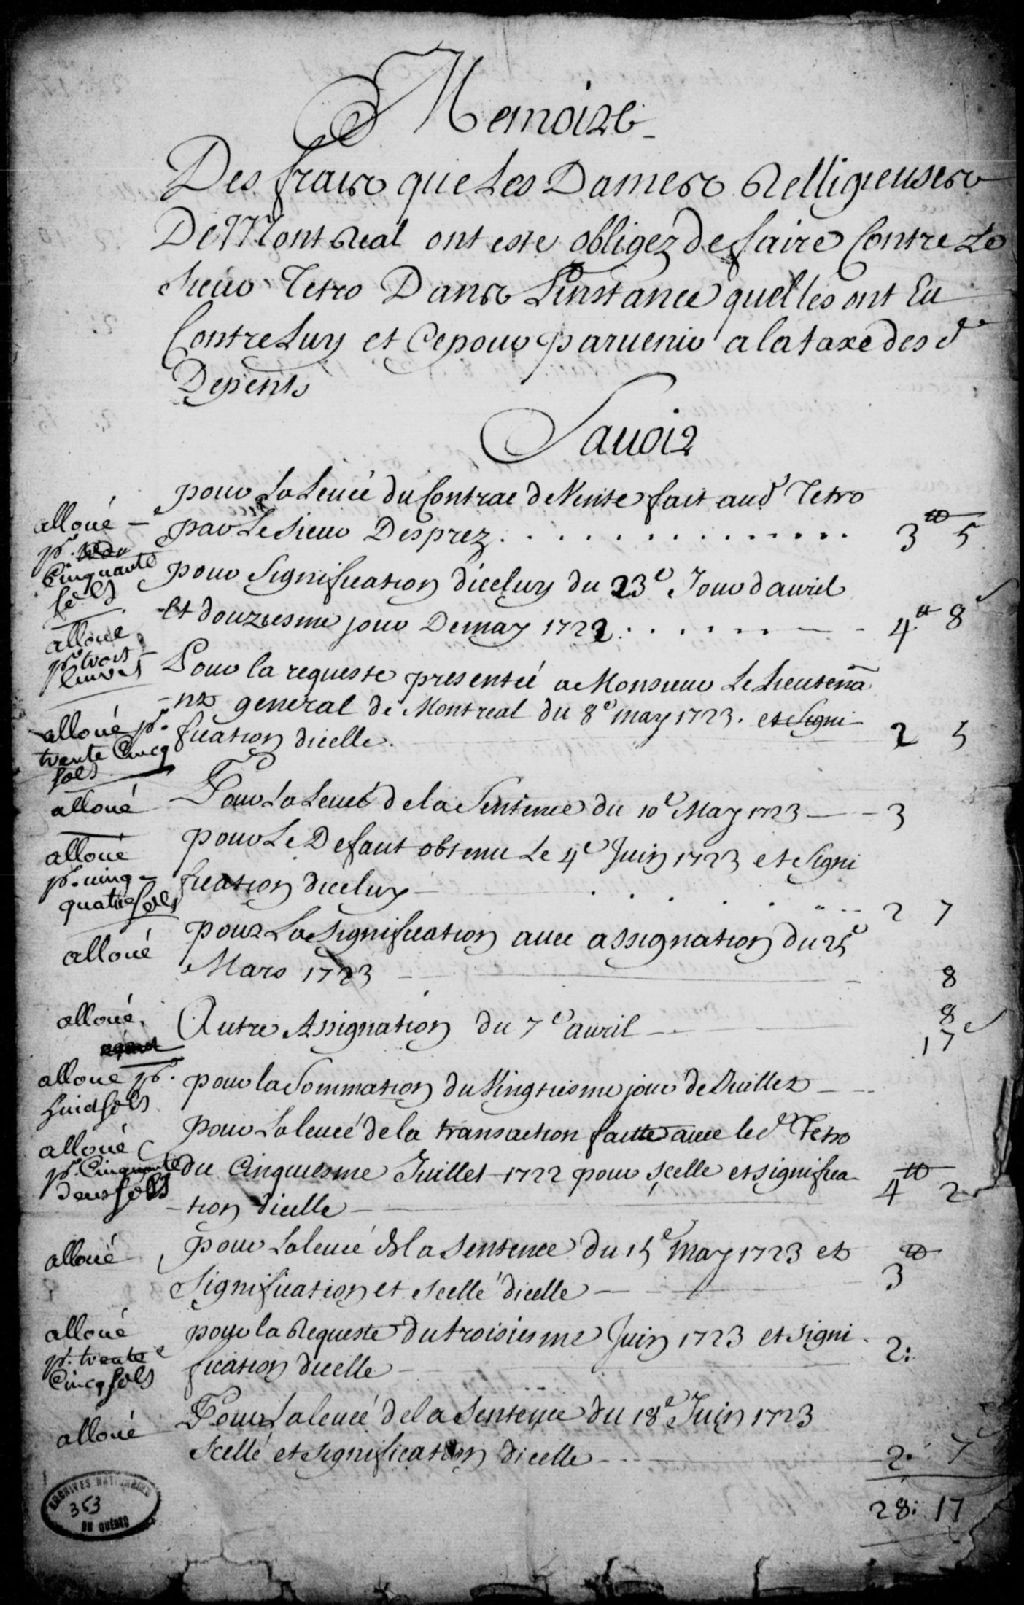 Memoire
Des frais que Les Dames Relligieuses
De Mont Real ont este obligez de faire Contre Le
Sieur Tetro Dans L'instance quelles ont Eu
Contre Luy et Ce pour paruenir a la taxe des d.
Depents
Sauoir
pour La Leueé du Contrac de Vente fait aud. Tetro
alloué
par Le Sieur Desprez . . . . . . . . . . . . 3tt 5
pr.
Cinquante
sols
pour Signification dicelluy du 23e Jour dauril
Et douziesme jour De may 1722 . . . . . . 4tt 8
alloué
pr. trois
Liures
Pour la requeste presenteé a Monsieur Le Lieutena
nt general de Montreal du 8e may 1723. et Signi-
fication dicelle. 2 5
alloué pr.
trente Cincq
sols
Pour La Leueé de la Sentence du 10e May 1723 — 3
alloué
pour Le Defaut obtenu Le 4e Juin 1723 et Signi
fication diceluy — 2 7
alloué
pr. uing
quatre sols
pour La Signification auec assignation du 25e
Mars 1723 — 8
alloué
Autre Assignation du 7e auril — 8
alloué.
17
pour la Sommation du Vingtiesme jour de Juillet —
alloué pr.
huict sols
pour La leueé de la transaction faitte auec le Sr Tetro
du Cinquiesme Juillet 1722 pour scelle et significa-
tion dicelle — 4tt 2
alloué
pr. Cinquante
deux sols
pour La leueé de la Sentence du 15e may 1723 et
Signification et scellé dicelle — 3tt
alloué
pour la Requeste du troisiesme Juin 1723 et signi-
fication dicelle — 2:
alloué
pr. trente
Cincq sols
Pour La leueé de la Sentence du 18e Juin 1723
Scellé et signification dicelle — 2: 7
alloué
28: 17
ARCHIVES NATIONALES
353
DU QUÉBEC